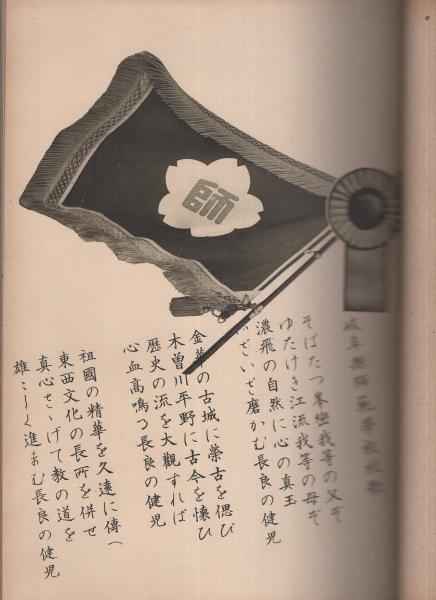 師
岐阜縣師範學校校歌
そばたつ峯巒我等の父ぞ
ゆたけき江流我等の母ぞ
濃飛の自然に心の真玉
いざいざ磨かむ長良の健児
金華の古城に榮古を偲び
木曽川平野に古今を懐ひ
歴史の流を大觀すれば
心血高鳴る長良の健児
祖國の精華を久遠に傳へ
東西文化の長所を併せ
真心さゝげて教の道を
雄々しく進まむ長良の健児